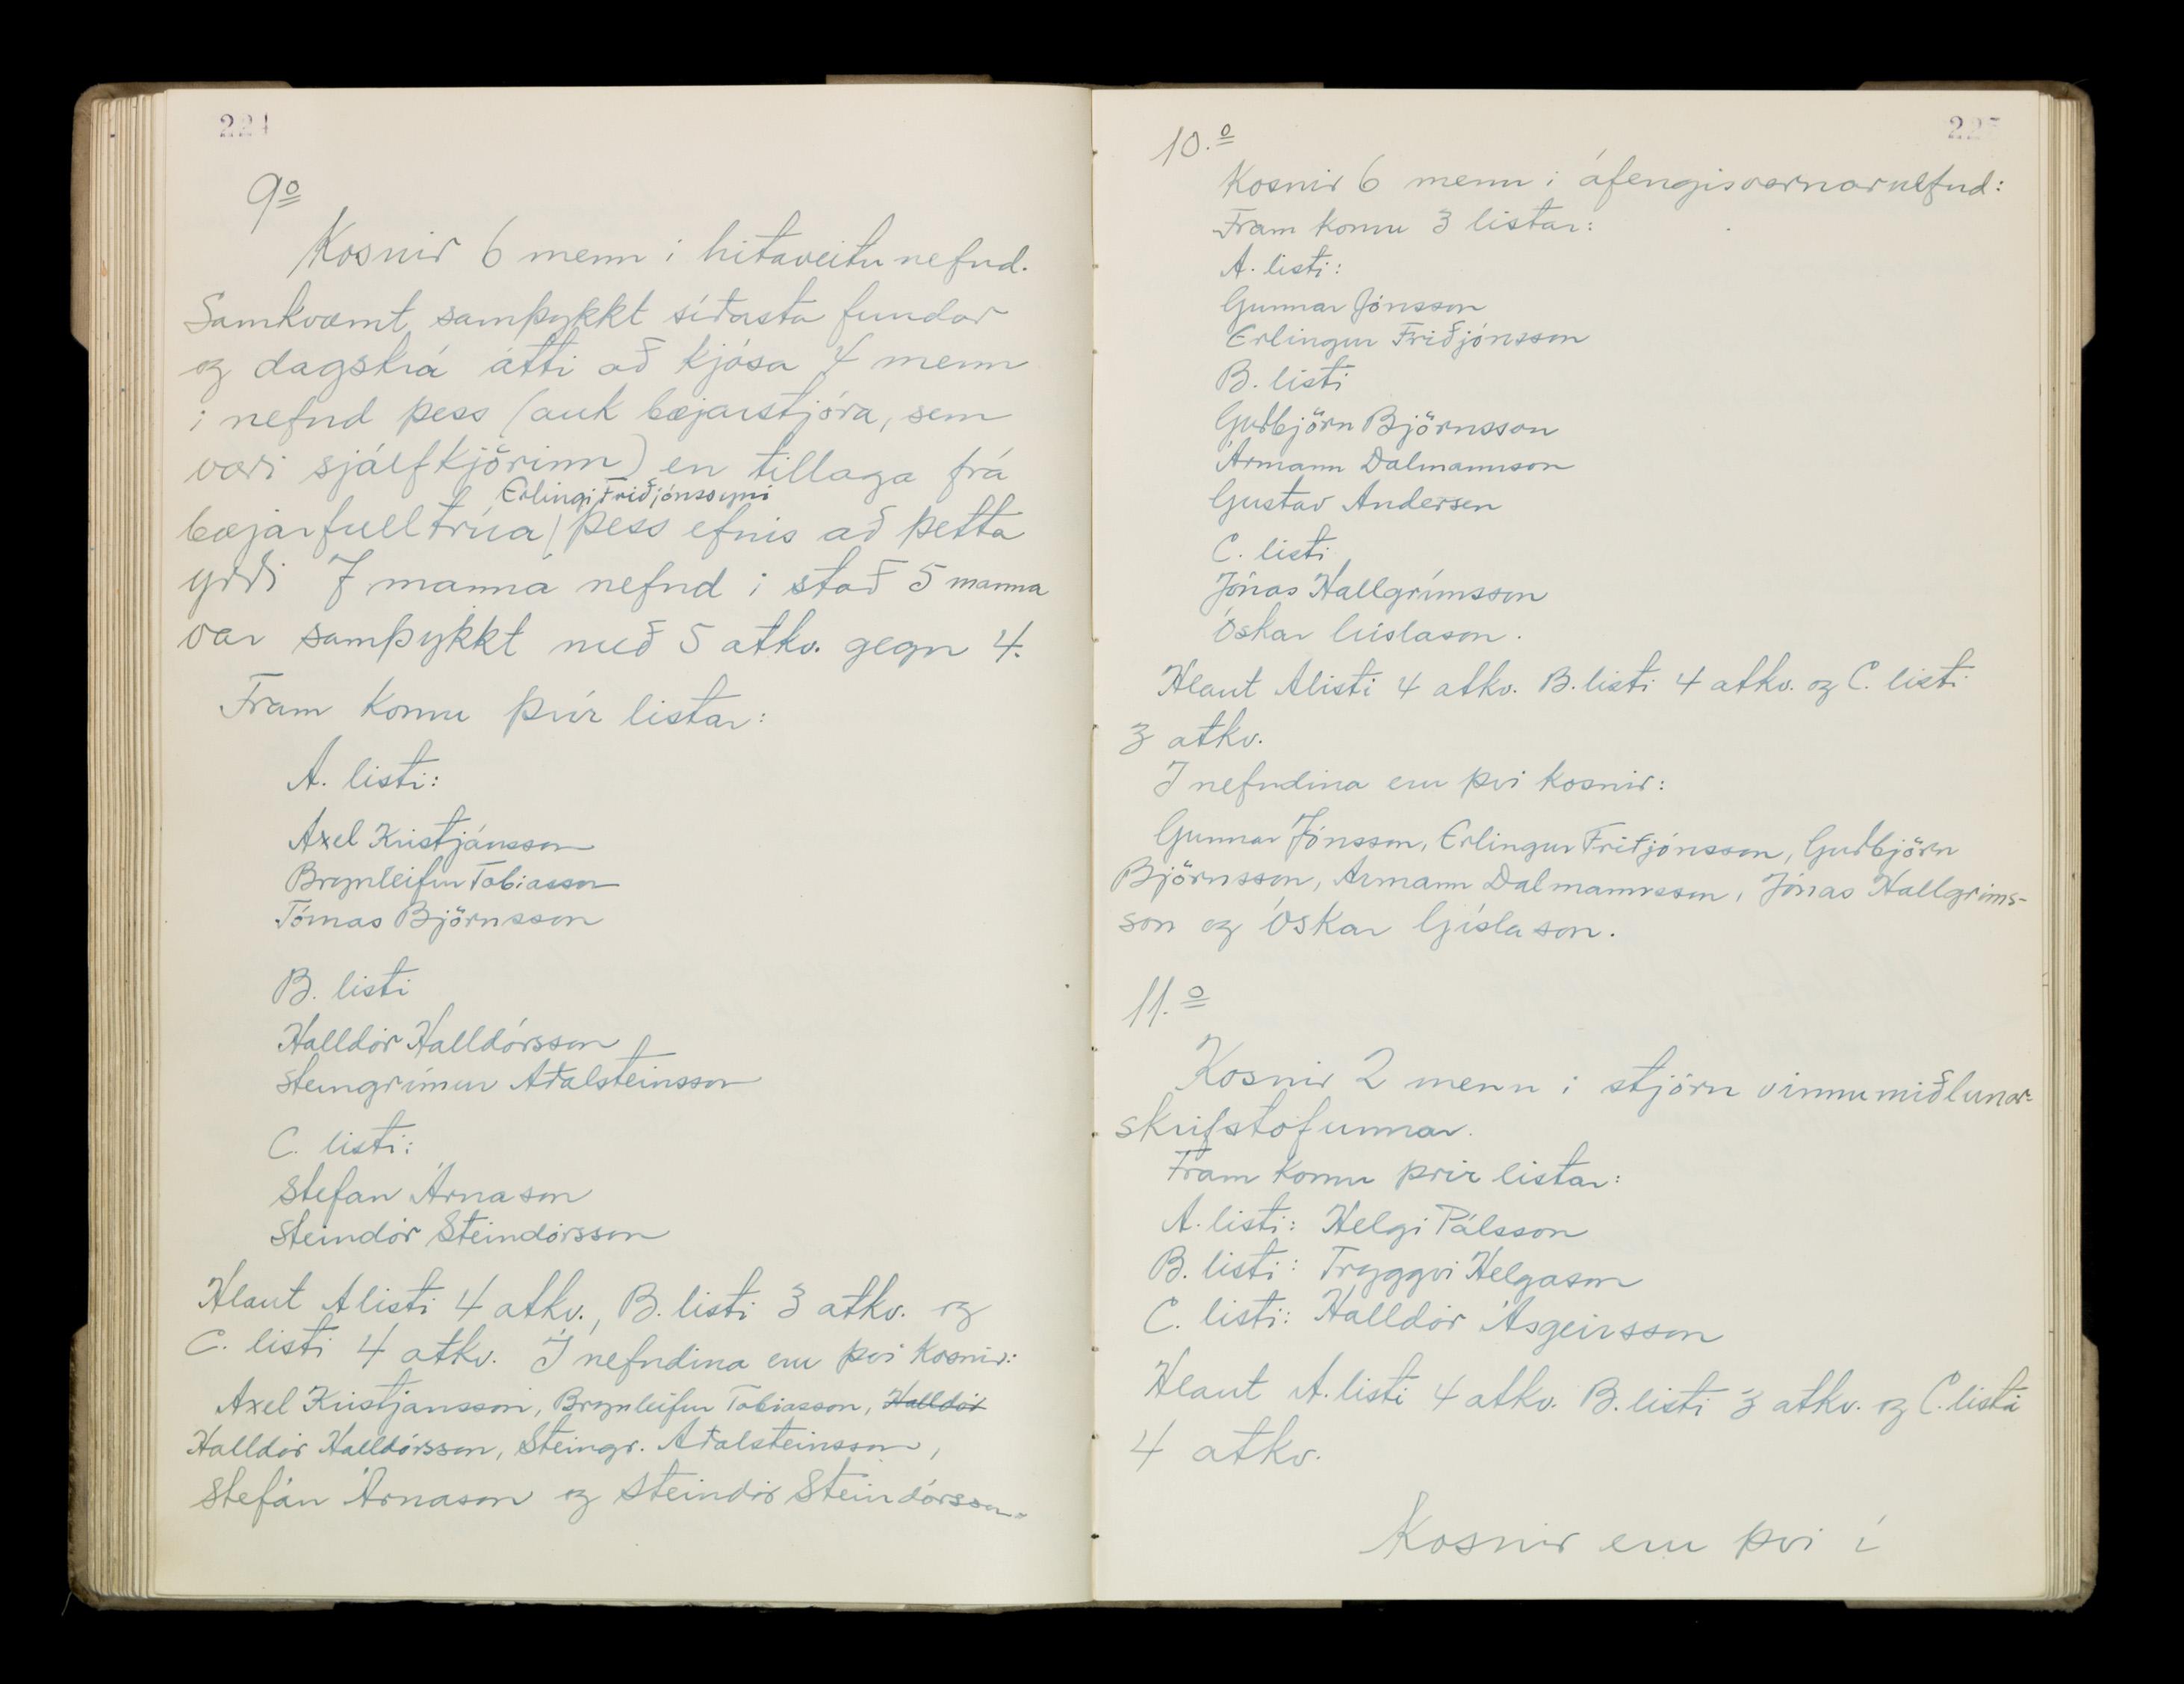 224
9o
Kosnir 6 menn i hitaveitunefnd.
Samkvæmt samþykkt síðasta fundar
og dagskrá átti að kjósa 4 menn
i nefnd þess (auk bæjarstjóra, sem
væri sjálfkjörinn) en tillaga frá
Erlingi Friðjónssyni
bæjarfulltrúa / þess efnis að þetta
yrði 7 manna nefnd i stað 5 manna
var samþykkt með 5 atkv. gegn 4.
Fram komu þrír listar:
A. listi:
Axel Kristjánsson
Brynleifur Tobiasson
Tómas Björnsson
B. listi
Halldór Halldórsson
Steingrímur Aðalsteinsson
C. listi:
Stefan Árnason
Steindór Steindórsson
Hlaut A listi 4 atkv., B. listi 3 atkv. og
C. listi 4 atkv. I nefndina eru þvi kosnir:
Axel Kristjansson, Brynleifur Tobiasson, Halldór
Halldór Halldórsson, Steingr. Aðalsteinsson,
Stefán Árnason og Steindór Steindórsson.
225
10.o
Kosnir 6 menn i áfengisvarnarnefnd:
Fram komu 3 listar:
A. listi:
Gunnar Jónsson
Erlingur Friðjónsson
B. listi
Guðbjörn Björnsson
Ármann Dalmannson
Gustav Andersen
C. listi
Jónas Hallgrímsson
Óskar Gíslason.
Hlaut A listi 4 atkv. B. listi 4 atkv. og C. listi
3 atkv.
I nefndina eru þvi kosnir:
Gunnar Jónsson, Erlingur Friðjónsson, Guðbjörn
Björnsson, Armann Dalmannsson, Jónas Hallgrims-
son og Óskar Gíslason.
11.o
Kosnir 2 menn i stjórn vinnumiðlunar-
skrifstofunnar.
Fram komu þrir listar:
A. listi: Helgi Pálsson
B. listi: Tryggvi Helgason
C. listi: Halldór Ásgeirsson
Hlaut A. listi 4 atkv. B. listi 3 atkv. og C. listi
4 atkv.
Kosnir eru þvi í